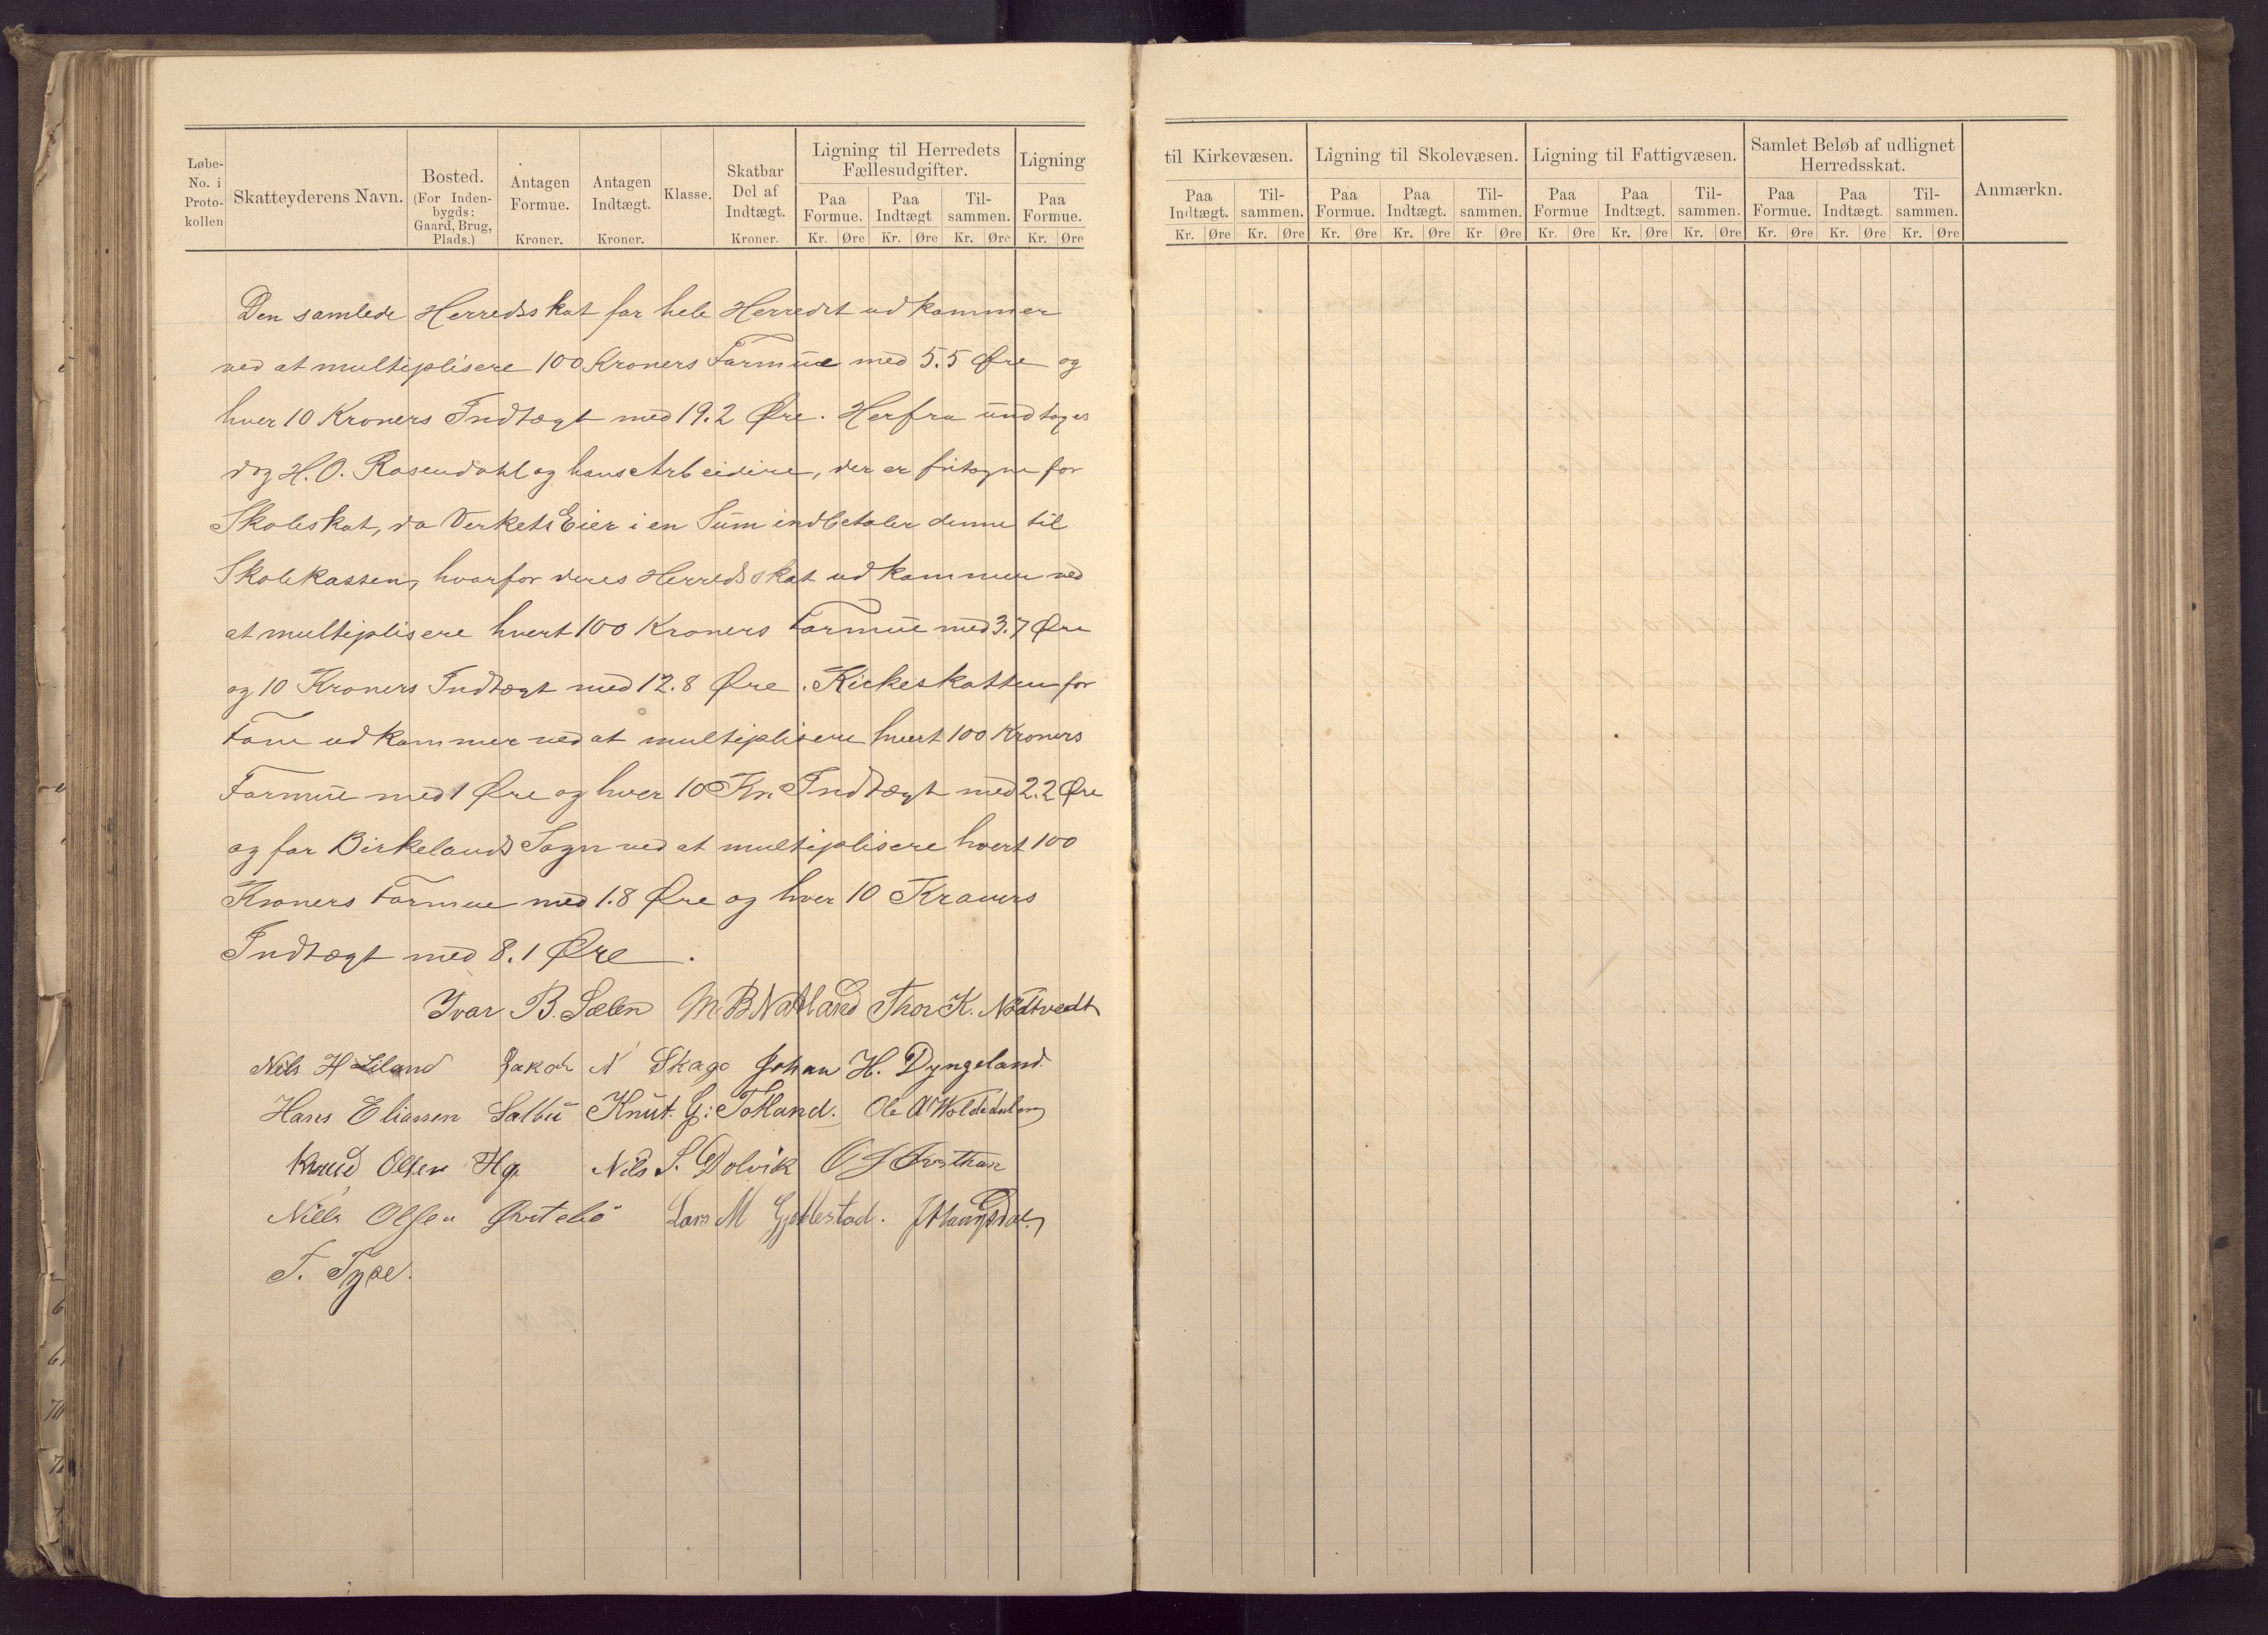 Løbe-
No. i
Proto-
kollen
Skatteyderens Navn.
Bosted.
(For Inden-
bygds:
Gaard, Brug,
Plads.)
Antagen
Formue.
Kroner.
Antagen
Indtægt.
Kroner.
Klasse.
Skatbar
Del af
Indtægt.
Kroner.
Ligning til Herredets
Fællesudgifter.
Paa
Formue.
Paa
Indtægt
Til-
sammen.
Kr. Øre Kr. Øre Kr. Øre
Ligning
Paa
Formue.
Kr. Øre
til Kirkevæsen.
Paa
Indtægt.
Til-
sammen.
Kr. Øre Kr. Øre
Ligning til Skolevæsen.
Paa
Formue.
Paa
Indtægt.
Til-
sammen.
Kr. Øre Kr. Øre Kr Øre
Ligning til Fattigvæsen.
Paa
Formue
Paa
Indtægt.
Til-
sammen.
Kr. Øre Kr. Øre Kr. Øre
Samlet Beløb af udlignet
Herredsskat.
Paa
Formue.
Paa
Indtægt.
Til-
sammen.
Kr. Øre Kr. Øre Kr. Øre
Anmærkn.
Den samlede Herredsskat for hele Herredet udkommer
ved at multiplisere 100 Kroners Formue med 5.5 Øre og
hver 10 Kroners Indtægt med 19.2 Øre. Herfra undtages
dog H. O. Rosendahl og hans Arbeidere, der er fritagne for
Skoleskat, da Verkets Eier i en Sum indbetaler denne til
Skolekassen, hvorfor deres Herredsskat udkommer ved
at multiplisere hvert 100 Kroners Formue med 3.7 Øre
og 10 Kroners Indtægt med 12.8 Øre. Kirkeskatten for
Fane udkommer ved at multiplisere hvert 100 Kroners
Formue med 1 Øre og hver 10 Kr. Indtægt med 2.2 Øre
og for Birkelands Sogn ved at multiplisere hvert 100
Kroners Formue med 1.8 Øre og hver 10 Kroners
Indtægt med 8.1 Øre.
Ivar B. Sælen M. B Natland Thor K. Nødtvedt
Nils H Liland Jakob N Skage Johan H. Dyngeland.
Hans Eliassen Salbu Knut. G: Totland. Ole A
Knud Olsen Hg. Nils S. Dolvik
Nills Olsen Øvstebö Lars M Gjellestad.
T.